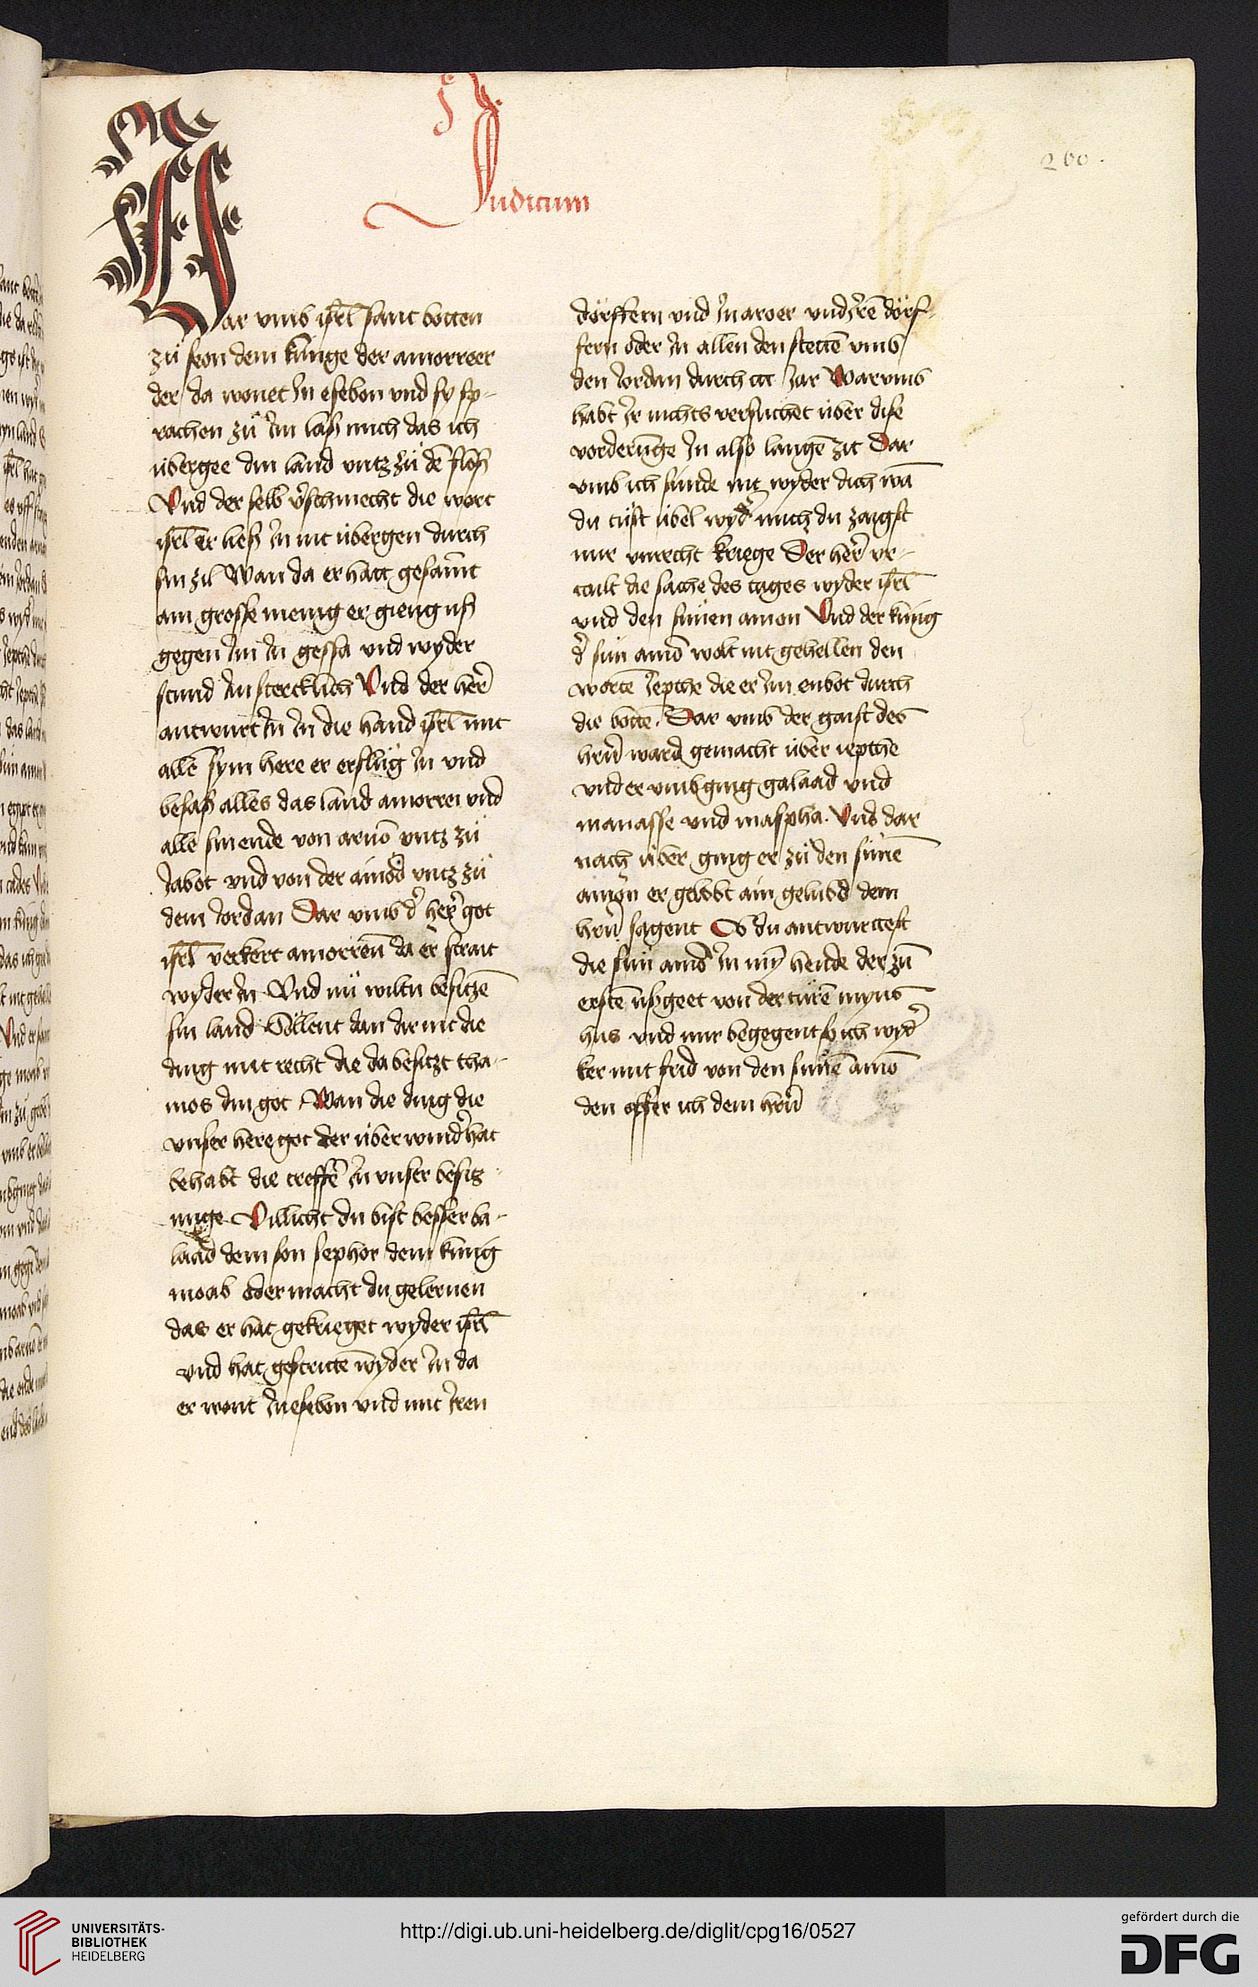 Judicum
260.
Dar vmb isrl sant botten
zů seon dem künige der amorreer
der da wonet jn esebon vnd sy sp-
rachen zů jm laß mich das ich
übergee din land vntz zů dē floß
Vnd der selb v̓schmecht die wort
isrl er ließ jn nit übergen durch
sin zil Wan da er hatt gesam̄t
ain grosse menig er gieng uß
gegen jm jn gessa vnd wyder
stund jm stercklich Vnd der her̄
antwurt jn jn die hand isrl mit
allē sym here er erslůg jn vnd
besaß alles das land amorrei vnd
alle sin ende von arnō vntz zů
Jabot vnd von der ainōd vntz zů
dem jordan Dar vmb d̓ her̓ got
isrl verkert amorreū da er strait
wyder jn Vnd nů wiltu besitzē
sin land Söllent dan dir nit die
ding mit recht die da besitzt cha-
mos din got Wan die ding die
vnser here got der überwind̓ hat
behabt die treffē jn vnser besitz
unge Villicht du bist besser ba-
laad dem son sephor dem künig
moab oder macht du gelernen
das er hat gekrieget wyder isrl
vnd hat gestrittē wyder jn da
er wont jn esebon vnd mit jren
dörffern vnd jn aroer vnd jrē dörf-
fern oder jn allen den stettē vmb
den jordan durch ccc jar Warumb
habt jr nichts versuchet über dise
vorderūge jn also langē zit Dar
vmb ich sünde nit wyder dich wā
du tůst übel wyd̓ mich du zaigst
mir vnrecht kriege Der her̓ vr-
tailt die sache des tages wyder isrl
vnd den sünen amon Vnd der künig
d̓ sün amō wolt nit gehellen den
wortē jepthe die er jm enbot durch
die bottē. Dar vmb der gaist des
herū ward gemacht über iepthe
vnd er vmbging galaad vnd
manasse vnd maspha. Vnd dar
nach über ging er zů den sünē
amon er gelobt ain gelubd dem
herū sagent Ob du antwurttest
die sün amō jn mȳ hende der zū
erstē ußgeet von der türē myns
hus vnd mir begegent so ich wyd̓
ker mit frid von den sünē amō
den opffer ich dem herū
UNIVERSITÄTS-
BIBLIOTHEK
HEIDELBERG
http://digi.ub.uni-heidelberg.de/diglit/cpg16/0527
gefördert durch die
DFG